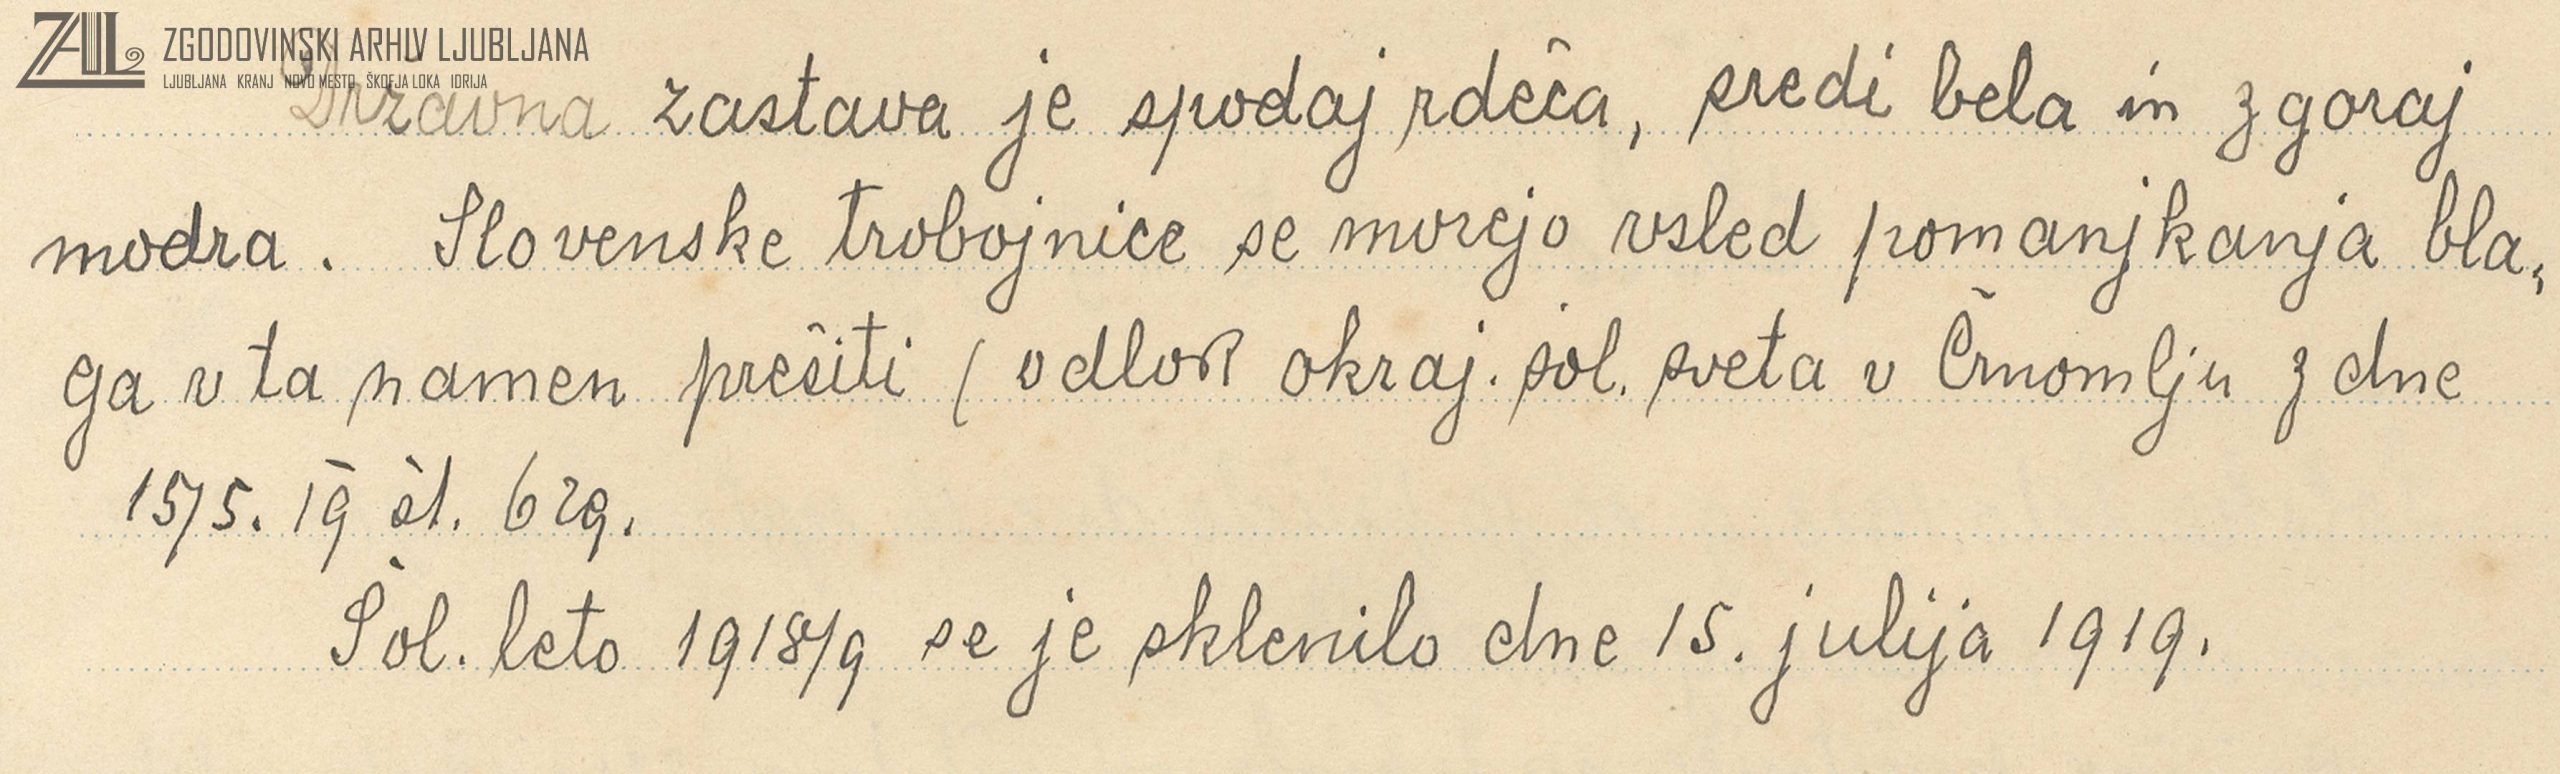 ZAL ZGODOVINSKI ARHIV LJUBLJANA
LJUBLJANA KRANJ NOVO MESTO ŠKOFJA LOKA IDRIJA
Državna zastava je spodaj rdeča, sredi bela in zgoraj
modra. Slovenske trobojnice se morejo vsled pomanjkanja bla,
ga v ta namen prešiti ( odlok okraj. šol. sveta v Črnomlju z dne
15/5. 19 št. 629.
Šol. leto 1918/9 se je sklenilo dne 15. julija 1919.